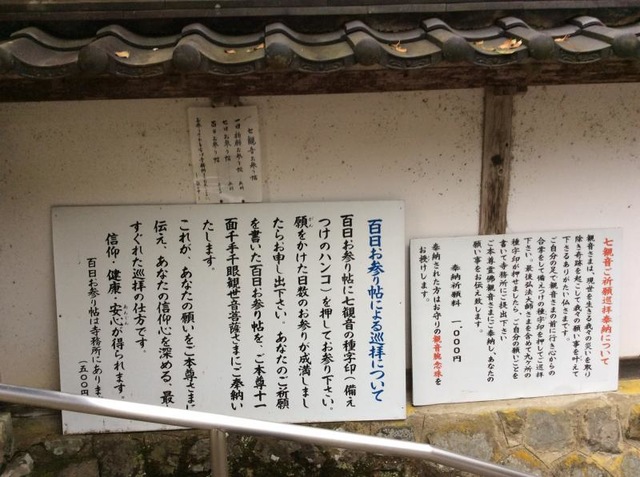 七観音ご祈願巡拝奉納について
観音さまは、現世を生きる我々の災いを取り
除き奇跡を起こして我々の願い事を叶えて
下さるありがたい仏さまです。
ご自分の足で観音さまの前に行き心からの
合掌をして備えつけの種字印を押してご巡拝
下さい。最後弘法大師さまを含めて九ヶ所の
種字印が押せましたら、ご自分の願いごとを
書いて寺務所にご提出下さい
ご本尊霊佛観音さまにご奉納し、あなたの
願い事をお伝え致します。
奉納祈願料 一、〇〇〇円
奉納された方はお守りの観音腕念珠を
お授けします。
百日お参り帖による巡拝について
百日お参り帖に七観音の種字印(備え
つけのハンコ)を押してお参り下さい。
願をかけた日数のお参りが成満しまし
たらお申し出下さい。あなたのご祈願
を書いた百日お参り帖を、ご本尊十一
面千手千眼観世音菩薩さまにご奉納い
たします。
これが、あなたの願いをご本尊さまに
伝え、あなたの信仰心を深める、最
すぐれた巡拝の仕方です。
信仰、健康、安心が得られます。
百日お参り帖は寺務所にありま
五〇〇円
七観音お参り帖
七日お参り帖
百日お参り帖